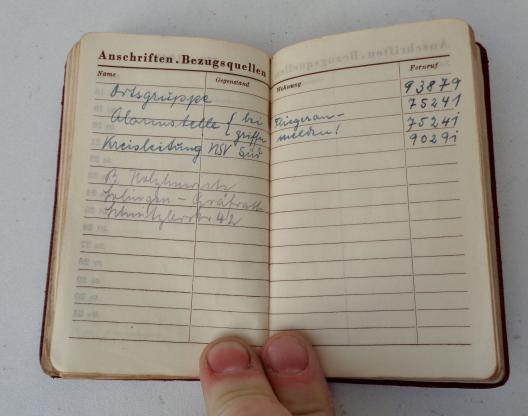 Anschriften.Bezugsquellen
Name Gegenstand Wohnung Fernruf
Ortsgruppe 93879
Alarmstelle { bei Fliegeran- 75241
griffen melden! 75241
Kreisleitung NSV Süd 9029i
Solingen - Gräfrath
42